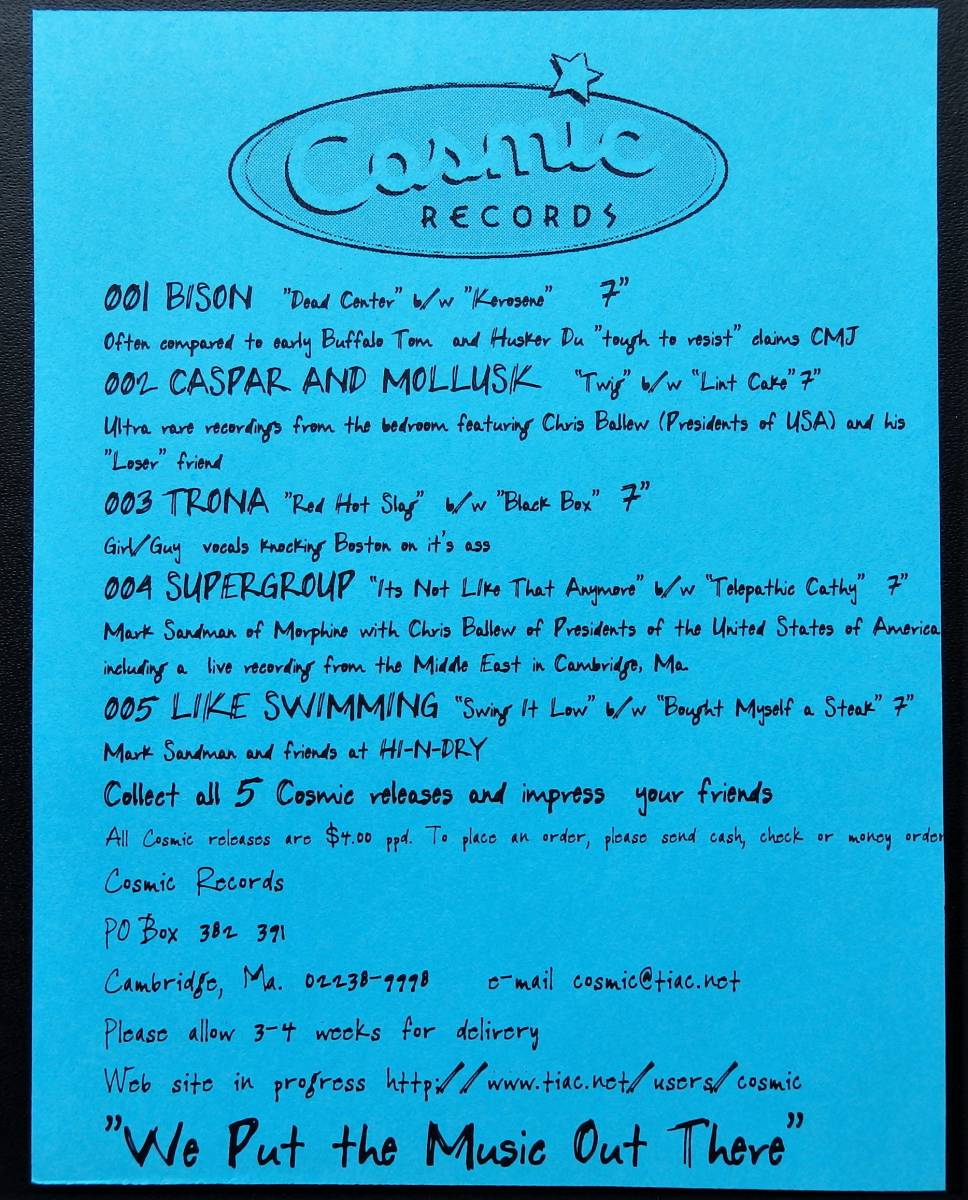 Cosmic
RECORDS
001 BISON "Dead Center" b/w "Kerosene" 7"
Often compared to early Buffalo Tom and Husker Du "tough to resist" claims CMJ
002 CASPAR AND MOLLUSK "Twig" b/w "Lint Cake" 7"
Ultra rare recordings from the bedroom featuring Chris Ballew (Presidents of USA) and his
"Loser" friend
003 TRONA "Red Hot Slag" b/w "Black Box" 7"
Girl/Guy vocals knocking Boston on it's ass
004 SUPERGROUP "Its Not LIke That Anymore" b/w "Telepathic Cathy" 7"
Mark Sandman of Morphine with Chris Ballew of Presidents of the United States of America
including a live recording from the Middle East in Cambridge, Ma.
005 LIKE SWIMMING "Swing It Low" b/w "Bought Myself a Steak" 7"
Mark Sandman and friends at HI-N-DRY
Collect all 5 Cosmic releases and impress your friends
All Cosmic releases are $4.00 ppd. To place an order, please send cash, check or money order
Cosmic Records
PO Box 382 391
Cambridge, Ma. 02238-9998 e-mail cosmic@tiac.net
Please allow 3-4 weeks for delivery
Web site in progress http://www.tiac.net/users/cosmic
"We Put the Music Out There"